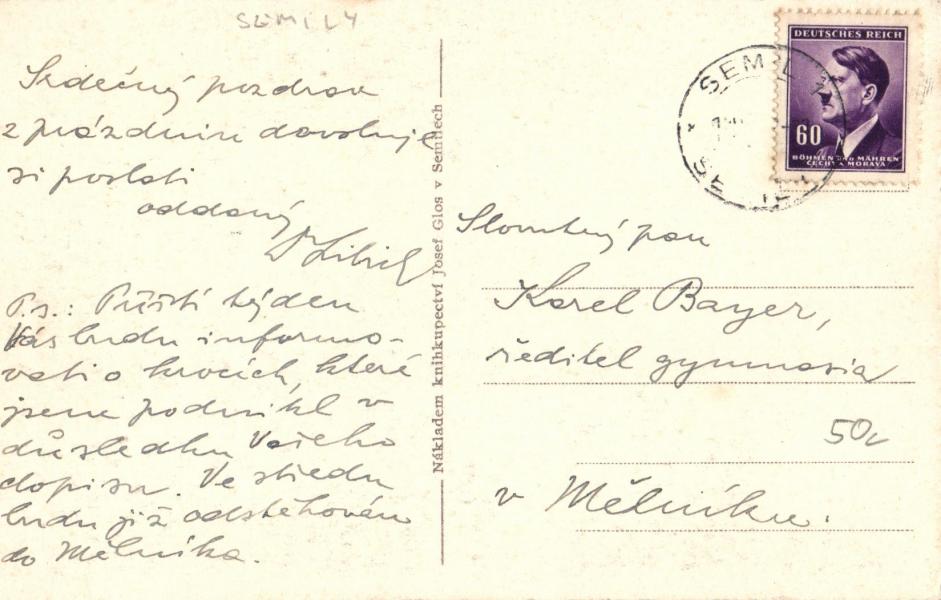 SEMILY
Srdečný pozdrav
z prázdnin dovoluje
si poslati
oddaný
P.s.: Příští týden
Vás budu informo-
vati o krocích, které
jsme podnikl v
důsledku Vašeho
dopisu. Ve středu
budu již odstěhován
do Mělníka.
Nákladem knihkupectví Josef Glos v Semilech
DEUTSCHES REICH
60
BÖHMEN und MÄHREN
ČECHY A MORAVA
SEMILY
Slovutný pan
Karel Bayer,
ředitel gymnasia
50
v Mělníku.